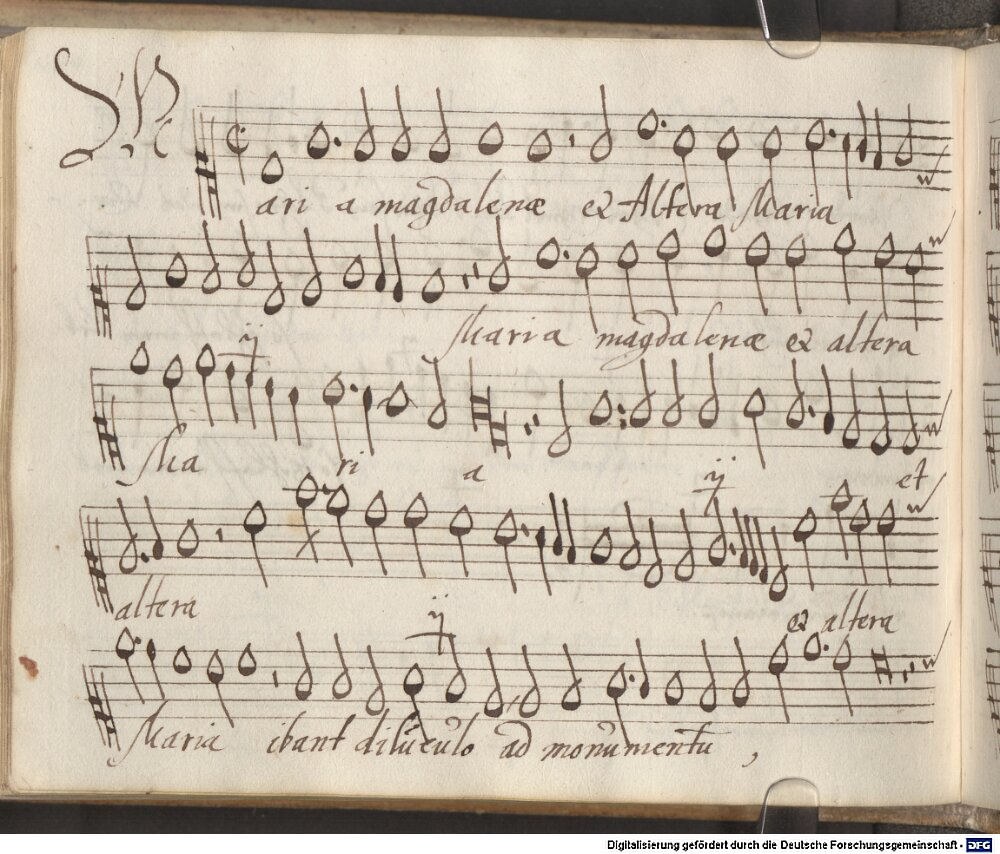 Mari a magdalenæ et Altera Maria
Maria magdalenæ et altera
Ma ri a ij et
altera ij et altera
Maria ibant diluculo ad monumentu,
Digitalisierung gefördert durch die Deutsche Forschungsgemeinschaft - DFG